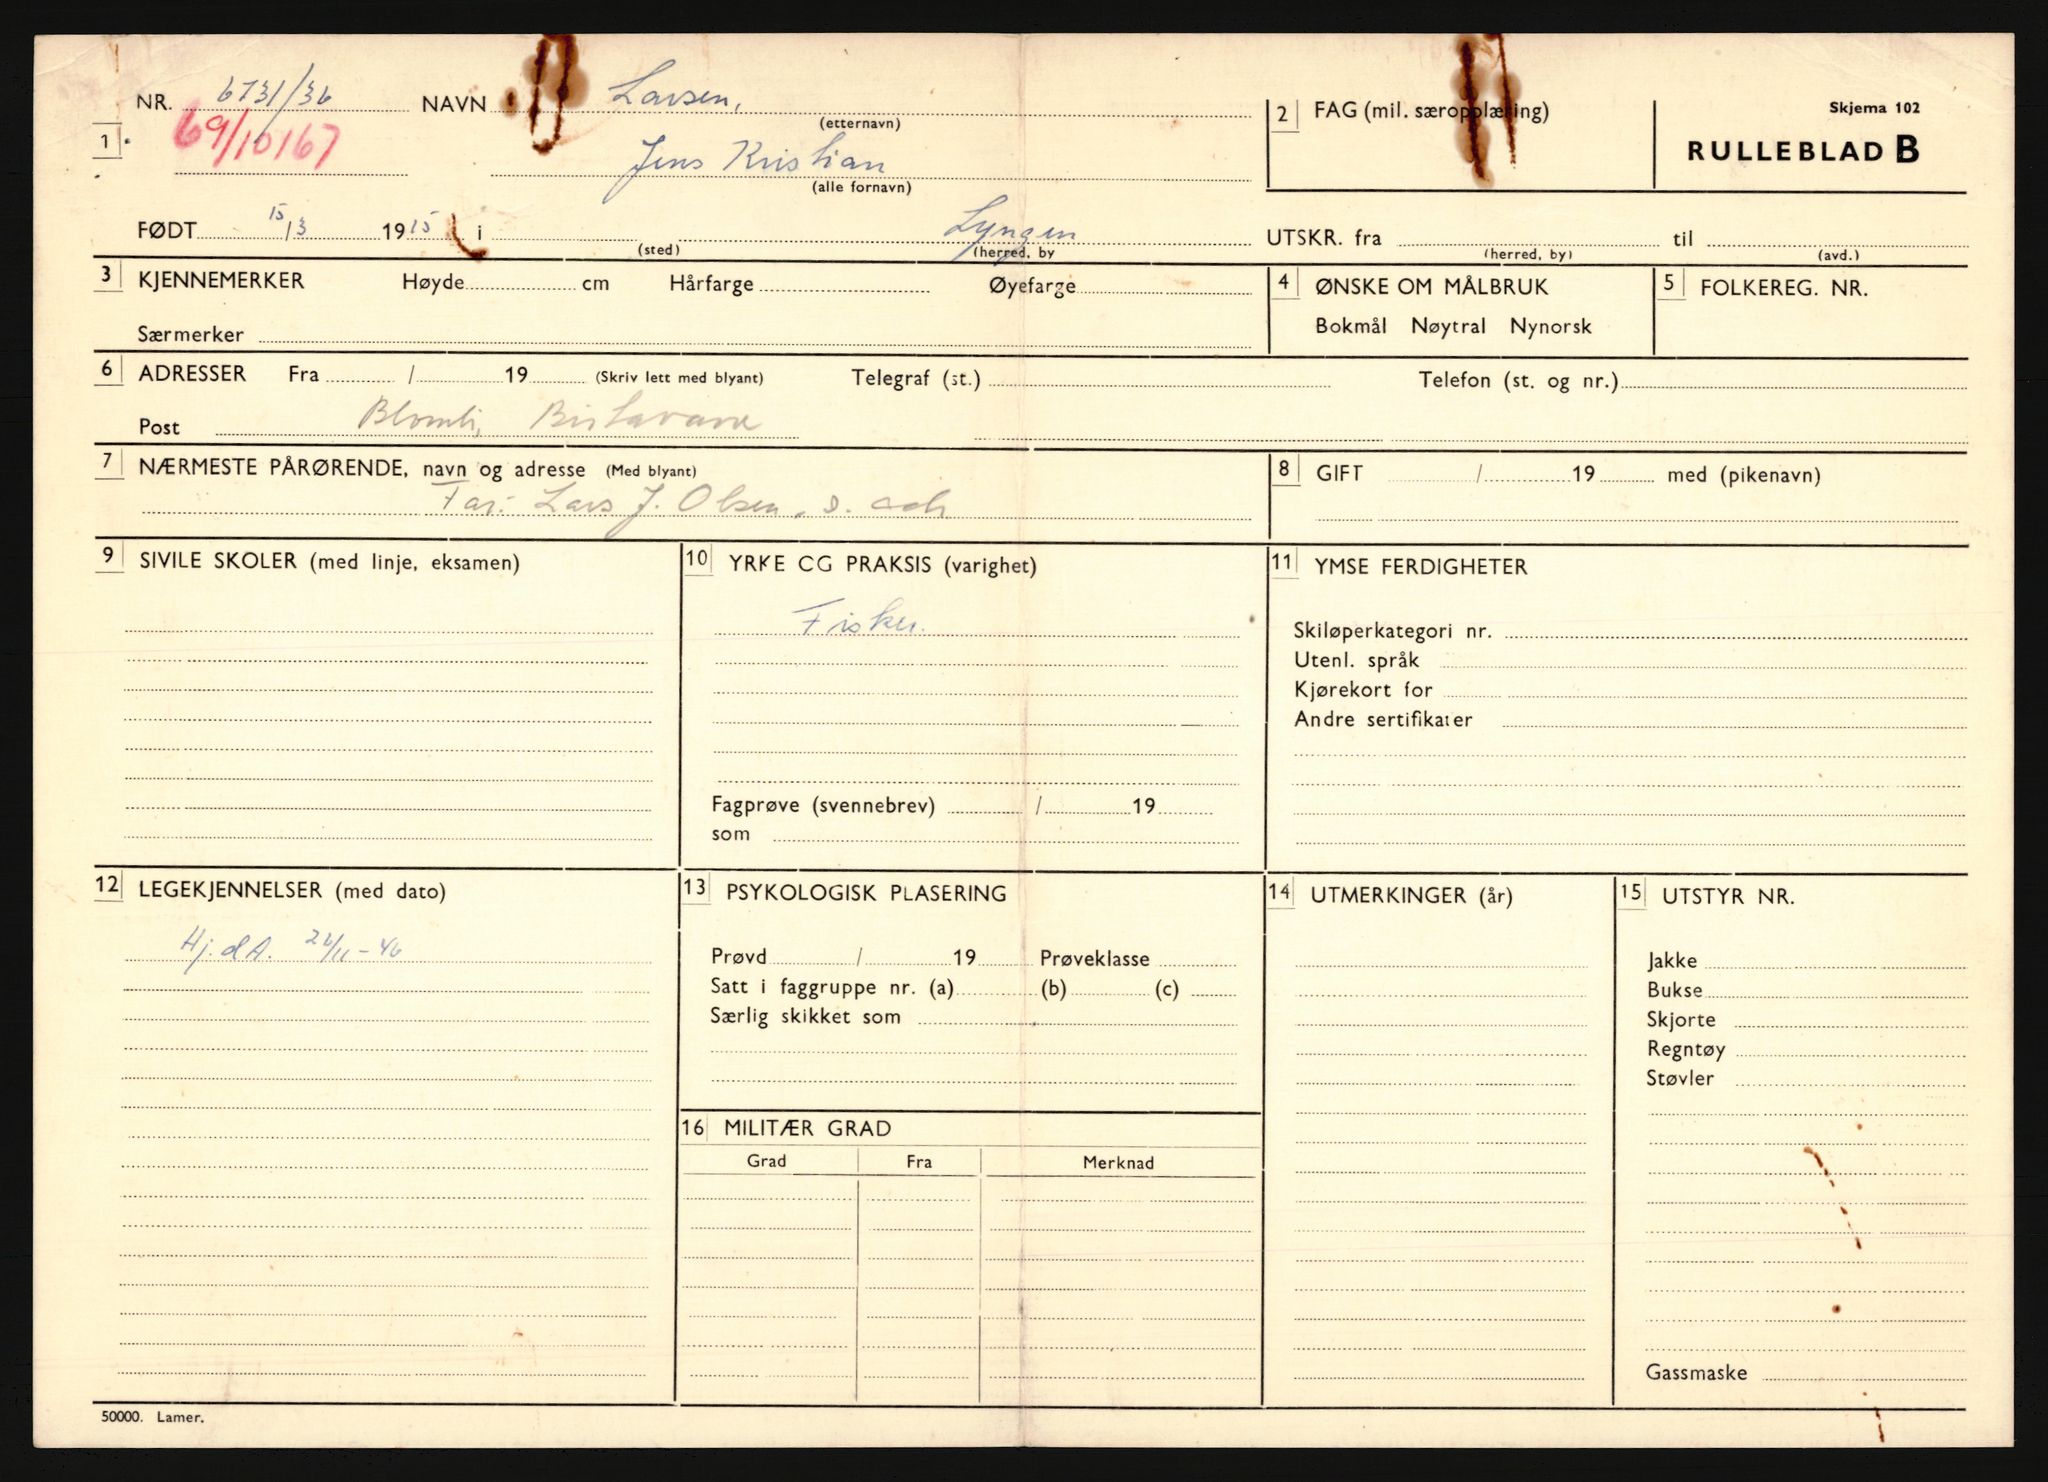 NR. 6731/36 NAVN Larsen, (etternavn)
1 69/10167 Jens Kristian (alle fornavn)
2 FAG (mil. særopplæring)
Skjema 102
RULLEBLAD B
FØDT 15/3 1915 i (sted) Lyngen (herred, by
UTSKR. fra (herred, by) til (avd.)
3 KJENNEMERKER Høyde cm Hårfarge Øyefarge
Særmerker
4 ØNSKE OM MÅLBRUK
Bokmål Nøytral Nynorsk
5 FOLKEREG. NR.
6 ADRESSER Fra / 19 (Skriv lett med blyant) Telegraf (st.) Telefon (st. og nr.)
Post Blomli, Birtavarre
7 NÆRMESTE PÅRØRENDE, navn og adresse (Med blyant)
Far: Lars J. Olsen, s. adr
8 GIFT / 19 med (pikenavn)
9 SIVILE SKOLER (med linje, eksamen)
10 YRKE CG PRAKSIS (varighet)
Fisker.
Fagprøve (svennebrev) / 19
som
11 YMSE FERDIGHETER
Skiløperkategori nr.
Utenl. språk
Kjørekort for
Andre sertifikater
12 LEGEKJENNELSER (med dato)
Hj. dA. 26/11-46
13 PSYKOLOGISK PLASERING
Prøvd / 19 Prøveklasse
Satt i faggruppe nr. (a) (b) (c)
Særlig skikket som
14 UTMERKINGER (år)
15 UTSTYR NR.
Jakke
Bukse
Skjorte
Regntøy
Støvler
Gassmaske
16 MILITÆR GRAD
Grad Fra Merknad
50000. Lamer.